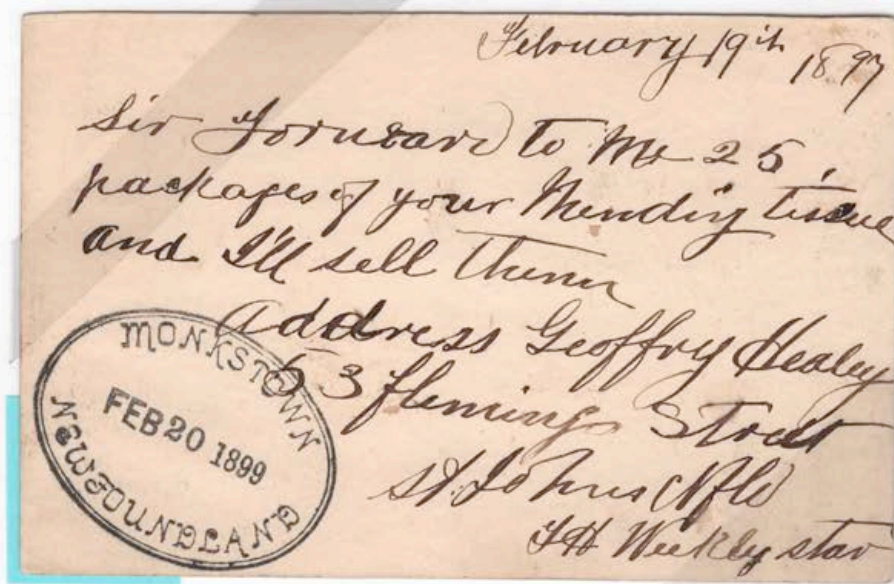 February 19th 1899
Sir Forward to Me 25,
packages of your Mending tissue
and I'll sell them
address Geoffry Healey
53 fleming Street
St. Johns Nfld
Weekly star
MONKSTOWN
FEB 20 1899
NEWFOUNDLAND